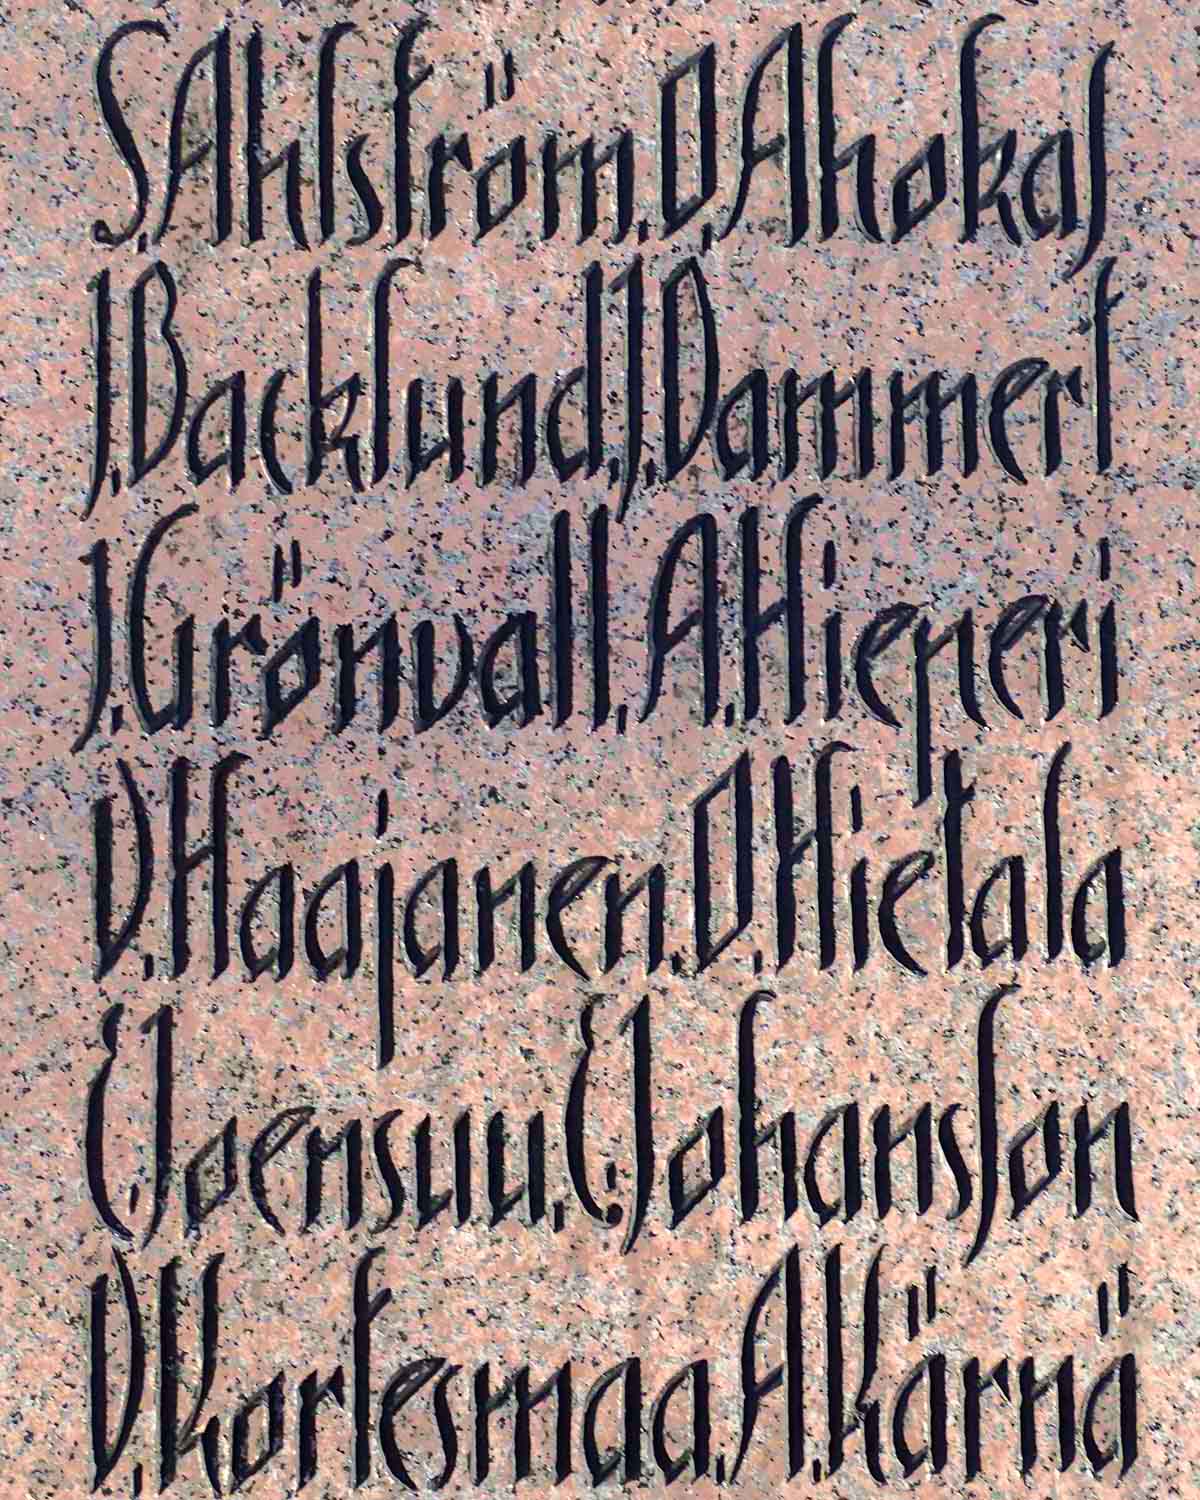 S.Ahlström.O.Ahokas
J.Backlund.J.Dammert
J.Grönvall.A.Hieneri
V.Haajanen.O.Hietala
E.Joensuu.E.Johansson
V.Kortesmaa.A.Kärnä